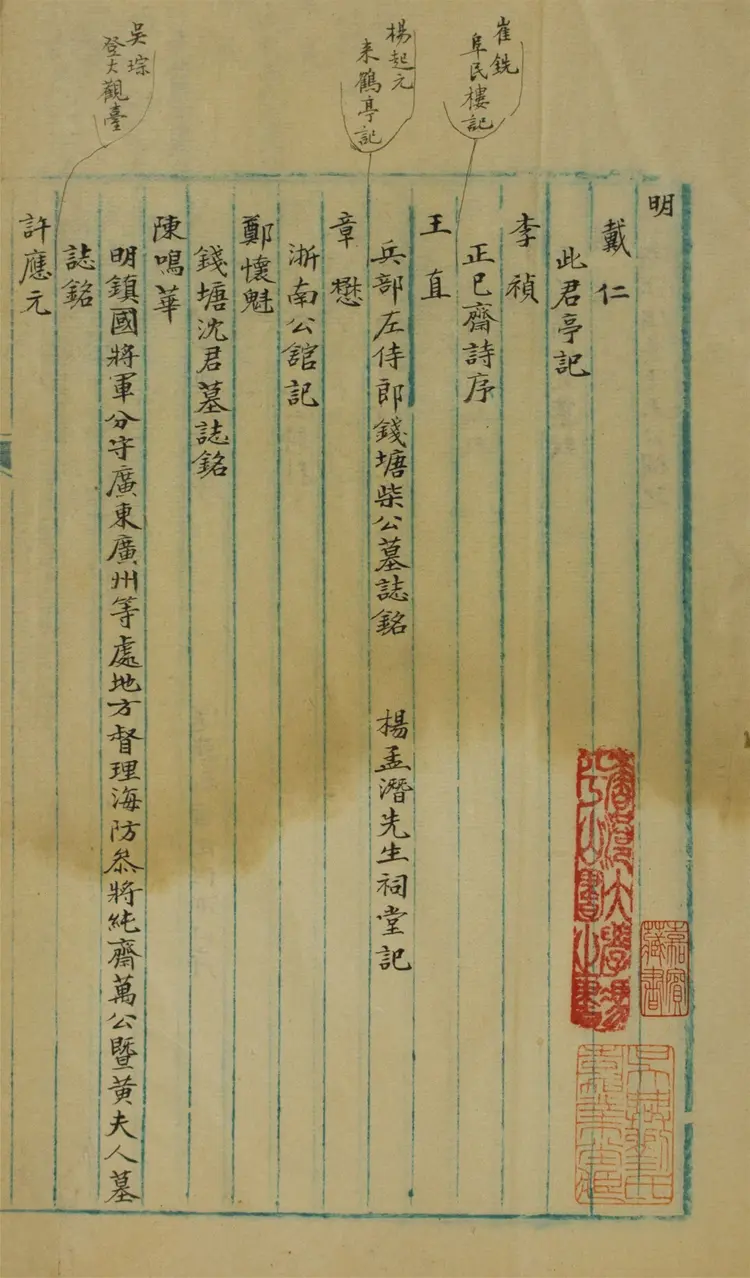 崔銑
阜民樓記
楊起元
来鶴亭記
吳琮
登大觀臺
明
戴仁
此君亭記
李禎
正已齋詩序
王直
兵部左侍郎錢塘柴公墓誌銘　楊孟潛先生祠堂記
章懋
浙南公舘記
鄭懷魁
錢塘沈君墓誌銘
陳鳴華
明鎮國將軍分守廣東廣州等處地方督理海防叅將純齋萬公暨黃夫人墓
誌銘
許應元
嘉賓
藏書